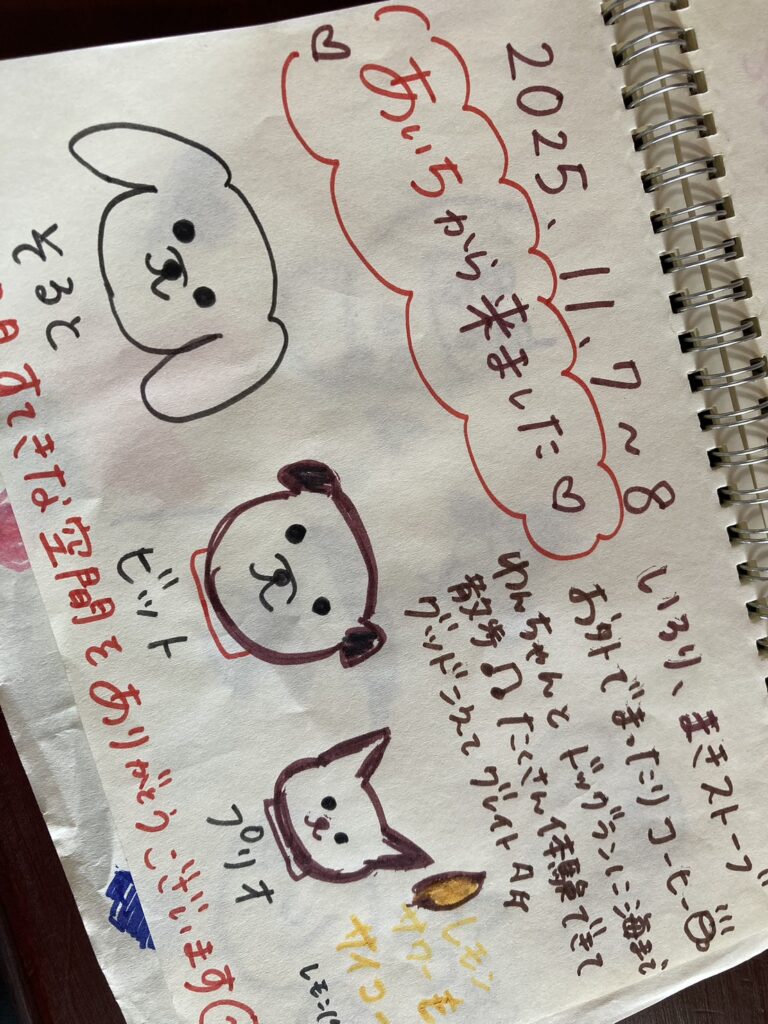 2025、11、7～8
♡あいちから来ました♡
いろり、まきストーブ
お外でまったりコーヒー
わんちゃんと ドッグランに海まで
散歩♫ たくさん体験できて
グッドングて グレイト
そると
ビット
プリオ
レモン
サイコー
日 すてきな空間をありがとうございます